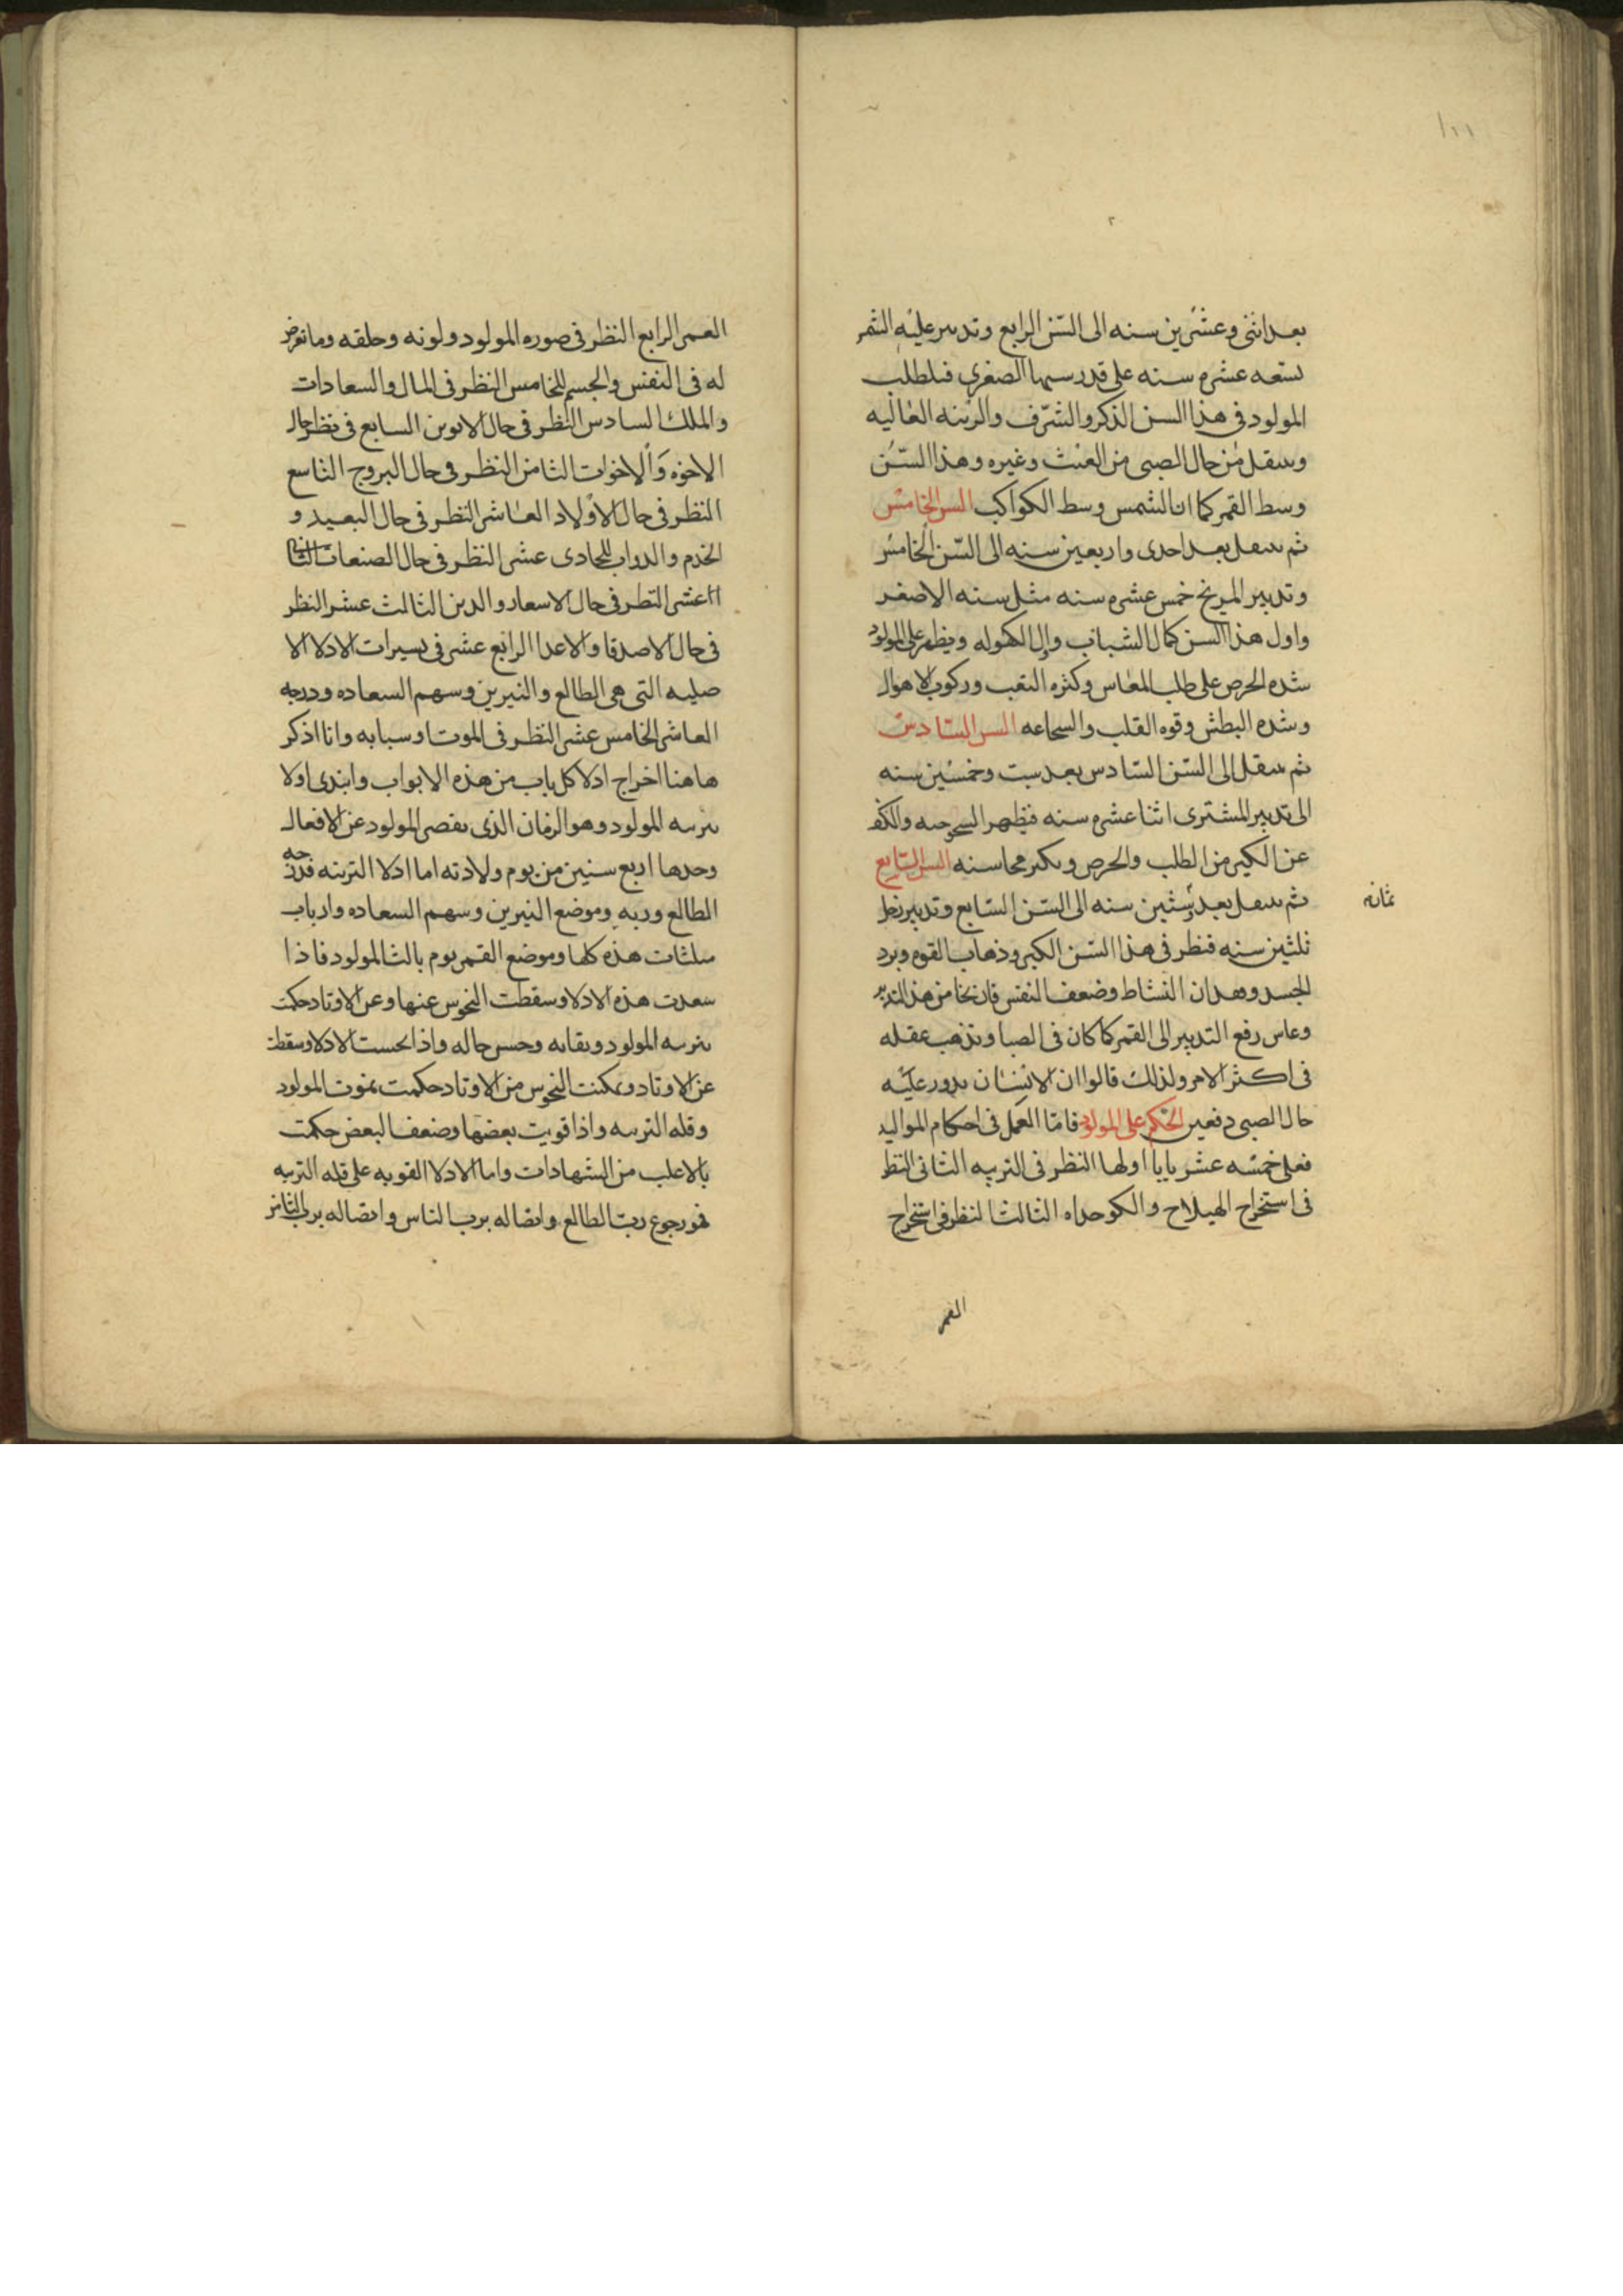 ١٢١
بعد اثنى وعشرين سنه الى السن الرابع وتدبير عليه الشمس
تسعه عشره سنه على قدر سنيها الصغرى فيطلب
المولود فى هذا السن الذكر والشرف والرتبه العاليه
وينتقل من حال الصبى من العبث وغيره وهذا السن
وسط القمر كما ان الشمس وسط الكواكب السن الخامس
ثم ينتقل بعد احدى واربعين سنه الى السن الخامس
وتدبير المريخ خمس عشره سنه مثل سنه الاصغر
واول هذا السن كمال الشباب واول الكهوله ويظهر على المولود
شده الحرص على طلب المعاس وكثره التعب وركوب الاهوال
وشده البطش وقوه القلب والسجاعه السن السادس
ثم ينتقل الى السن السادس بعد ست وخمسين سنه
الى تدبير المشترى اثنا عشره سنه فيظهر الشيخوخيه والكف
عن الكبير من الطلب والحرص ويكبر محاسنه السن السابع
ثم ينتقل بعد ستين سنه الى السن السابع وتدبير زحل
ثمانيه
ثلثين سنه فيظهر فى هذا السن الكبر وذهاب القوه وبرد
الجسد وهدان النشاط وضعف النفس فان نجا من هذا التدبير
وعاس رفع التدبير الى القمر كما كان فى الصبا وتذهب عقله
فى اكثر الامر ولذلك قالوا ان الانسان يدور عليه
حال الصبى دفعين الحكم على المولود فاما العمل فى احكام المواليد
فعلى خمسه عشر بابا اولها النظر فى التربيه الثانى النظر
فى استخراج الهيلاج والكوحداه الثالث النظر فى استخراج
العمر
العمر الرابع النظر فى صوره المولود ولونه وخلقه وما تعرض
له فى النفس والجسم الخامس النظر فى المال والسعادات
والملك السادس النظر فى حال الابوين السابع فى نظر حال
الاخوه والاخوات الثامن النظر فى حال البروج التاسع
النظر فى حال الاولاد العاشر النظر فى حال العبيد و
الخدم والدواب الحادى عشر النظر فى حال الصنعات الثانى
عشر النظر فى حال الاسعار والدين الثالث عشر النظر
فى حال الاصدقا والاعدا الرابع عشر فى تسيرات الادلا الا
صليه التى هى الطالع والنيرين وسهم السعاده ودرجه
العاشر الخامس عشر النظر فى الموت وسبابه وانا اذكر
هاهنا اخراج ادلا كل باب من هذه الابواب وابتدى اولا
بتربيه المولود وهو الزمان الذى يقصر المولود عن الافعال
وحدها اربع سنين من يوم ولادته اما ادلا التربيه فدرجه
الطالع وربه وموضع النيرين وسهم السعاده وارباب
مثلثات هذه كلها وموضع القمر يوم ثالث المولود فاذا
سعدت هذه الادلا وسقطت النحوس عنها وعن الاوتاد حكمت
بتربيه المولود وبقايه وحسن حاله واذا نحست الادلا وسقطت
عن الاوتاد وتمكنت النحوس من الاوتاد حكمت بموت المولود
وقله التربيه واذا قويت بعضها وضعف البعض حكمت
بالاغلب من الشهادات واما الادلا القويه على قله التربيه
فهو رجوع رب الطالع واتصاله برب الثامن واتصاله برب الثامن